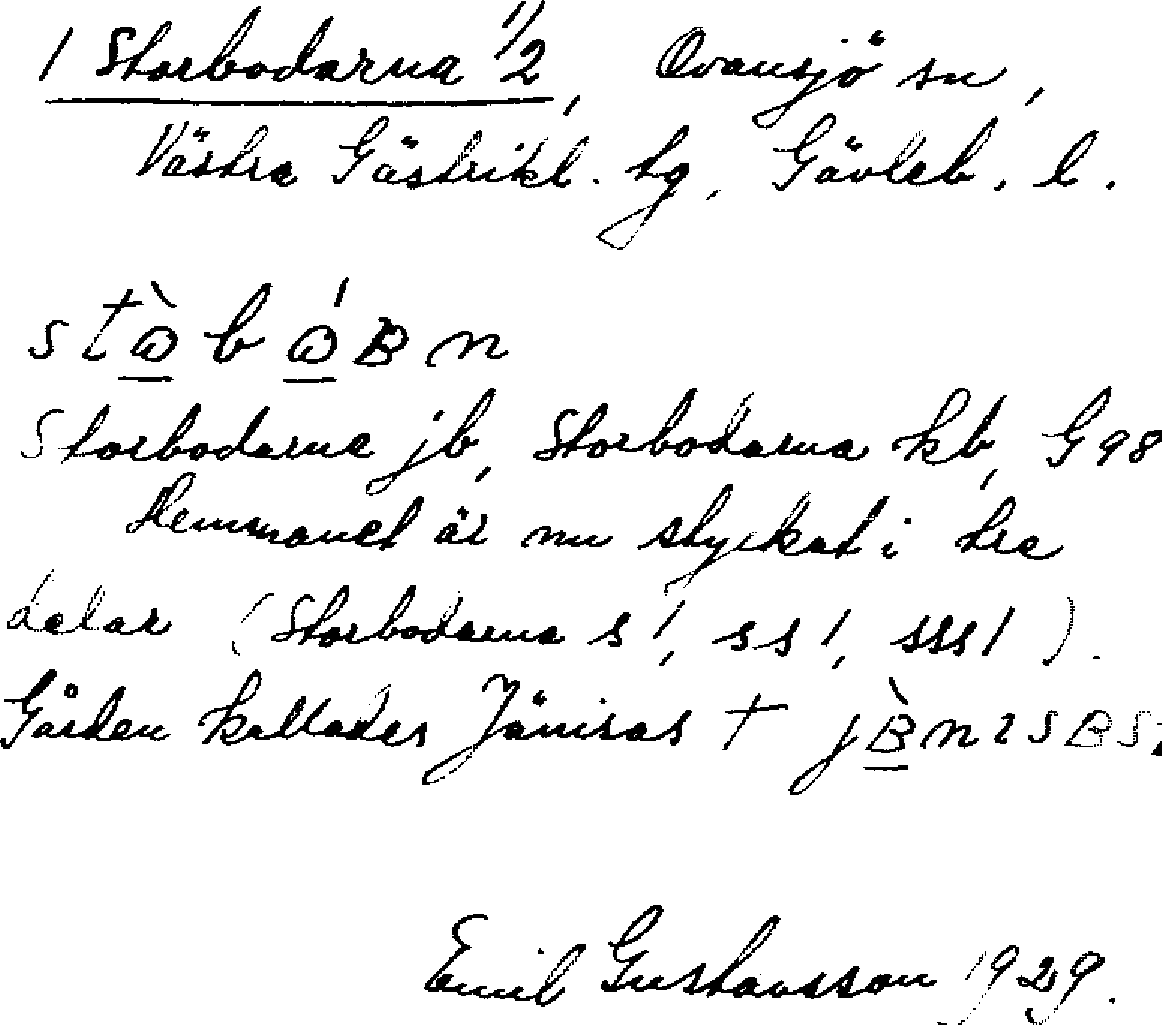 1 Storbodarna 1/2, Ovansjö sn,
Västra Gästrikl. tg, Gävleb. l.
Storbodarne jb, Storbodarna kb, G 98
Hemmanet är nu styckat i tre
delar (Storbodarna s 1, ss 1, sss 1).
Gården kallades Jänisas †
Emil Gustavsson 1929.